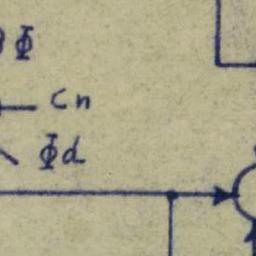 Φ
Cn
Φd